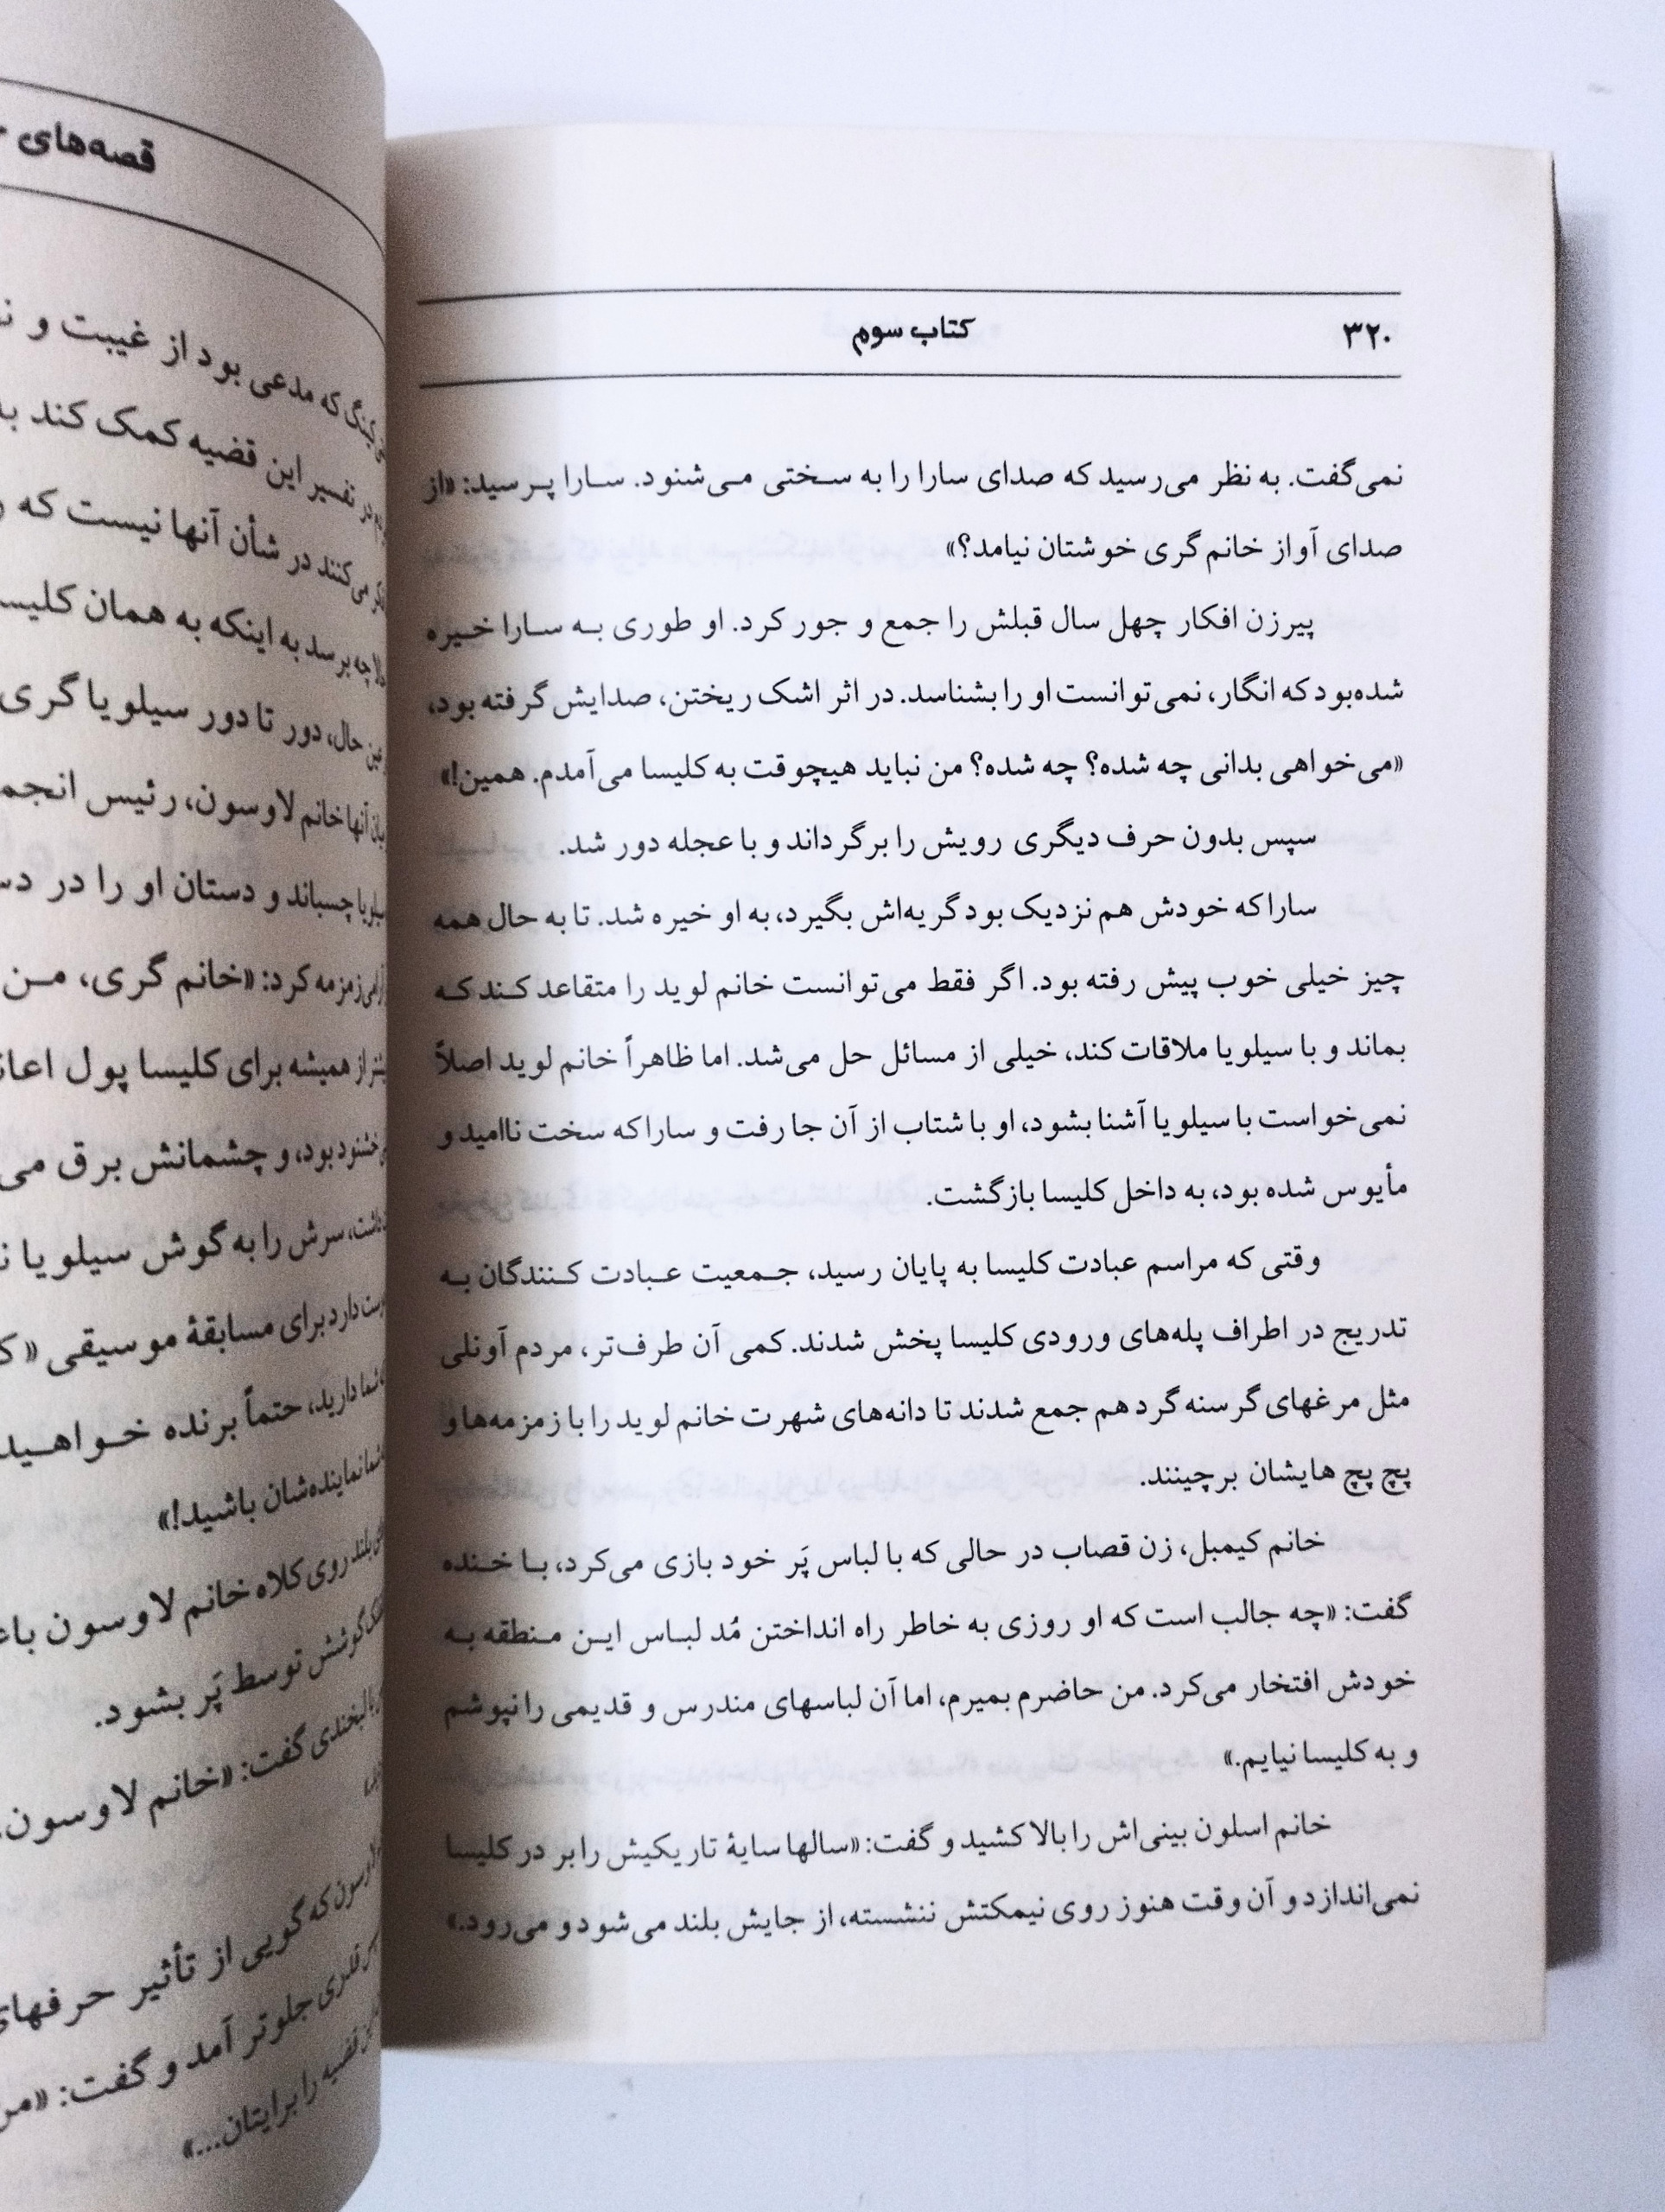 ۳۲۰
کتاب سوم
نمی‌گفت. به نظر می‌رسید که صدای سارا را به سختی می‌شنود. سارا پرسید: «از
صدای آواز خانم گری خوشتان نیامد؟»
پیرزن افکار چهل سال قبلش را جمع و جور کرد. او طوری به سارا خیره
شده‌بود که انگار، نمی‌توانست او را بشناسد. در اثر اشک ریختن، صدایش گرفته بود،
«می‌خواهی بدانی چه شده؟ چه شده؟ من نباید هیچوقت به کلیسا می‌آمدم. همین!»
سپس بدون حرف دیگری رویش را برگرداند و با عجله دور شد.
سارا که خودش هم نزدیک بود گریه‌اش بگیرد، به او خیره شد. تا به حال همه
چیز خیلی خوب پیش رفته بود. اگر فقط می‌توانست خانم لوید را متقاعد کند که
بماند و با سیلویا ملاقات کند، خیلی از مسائل حل می‌شد. اما ظاهراً خانم لوید اصلاً
نمی‌خواست با سیلویا آشنا بشود، او با شتاب از آن جا رفت و سارا که سخت ناامید و
مأیوس شده بود، به داخل کلیسا بازگشت.
وقتی که مراسم عبادت کلیسا به پایان رسید، جمعیت عبادت کنندگان به
تدریج در اطراف پله‌های ورودی کلیسا پخش شدند. کمی آن طرف‌تر، مردم آونلی
مثل مرغهای گرسنه گرد هم جمع شدند تا دانه‌های شهرت خانم لوید را با زمزمه‌ها و
پچ پچ هایشان برچینند.
خانم کیمبل، زن قصاب در حالی که با لباس پَر خود بازی می‌کرد، با خنده
گفت: «چه جالب است که او روزی به خاطر راه انداختن مُد لباس این منطقه به
خودش افتخار می‌کرد. من حاضرم بمیرم، اما آن لباسهای مندرس و قدیمی را نپوشم
و به کلیسا نیایم.»
خانم اسلون بینی‌اش را بالا کشید و گفت: «سالها سایهٔ تاریکیش را بر در کلیسا
نمی‌اندازد و آن وقت هنوز روی نیمکتش ننشسته، از جایش بلند می‌شود و می‌رود.»
قصه‌های
که مدعی بود از غیبت و
در تفسیر این قضیه کمک کند
می‌کنند در شأن آنها نیست که
چه برسد به اینکه به همان
حال، دور تا دور سیلویا گری
آنها خانم لاوسون، رئیس
چسباند و دستان او را در
زمزمه کرد: «خانم گری، من
از همیشه برای کلیسا پول
خشنود بود، و چشمانش برق
داشت، سرش را به گوش سیلویا
دارد برای مسابقهٔ موسیقی
شما دارید، حتماً برنده خواهید
شما نماینده‌شان باشید!»
بلند روی کلاه خانم لاوسون
گوشش توسط پَر بشود.
با لبخندی گفت: «خانم لاوسون،
که گویی از تأثیر حرفهای
جلوتر آمد و گفت:
قضیه را برایتان...»